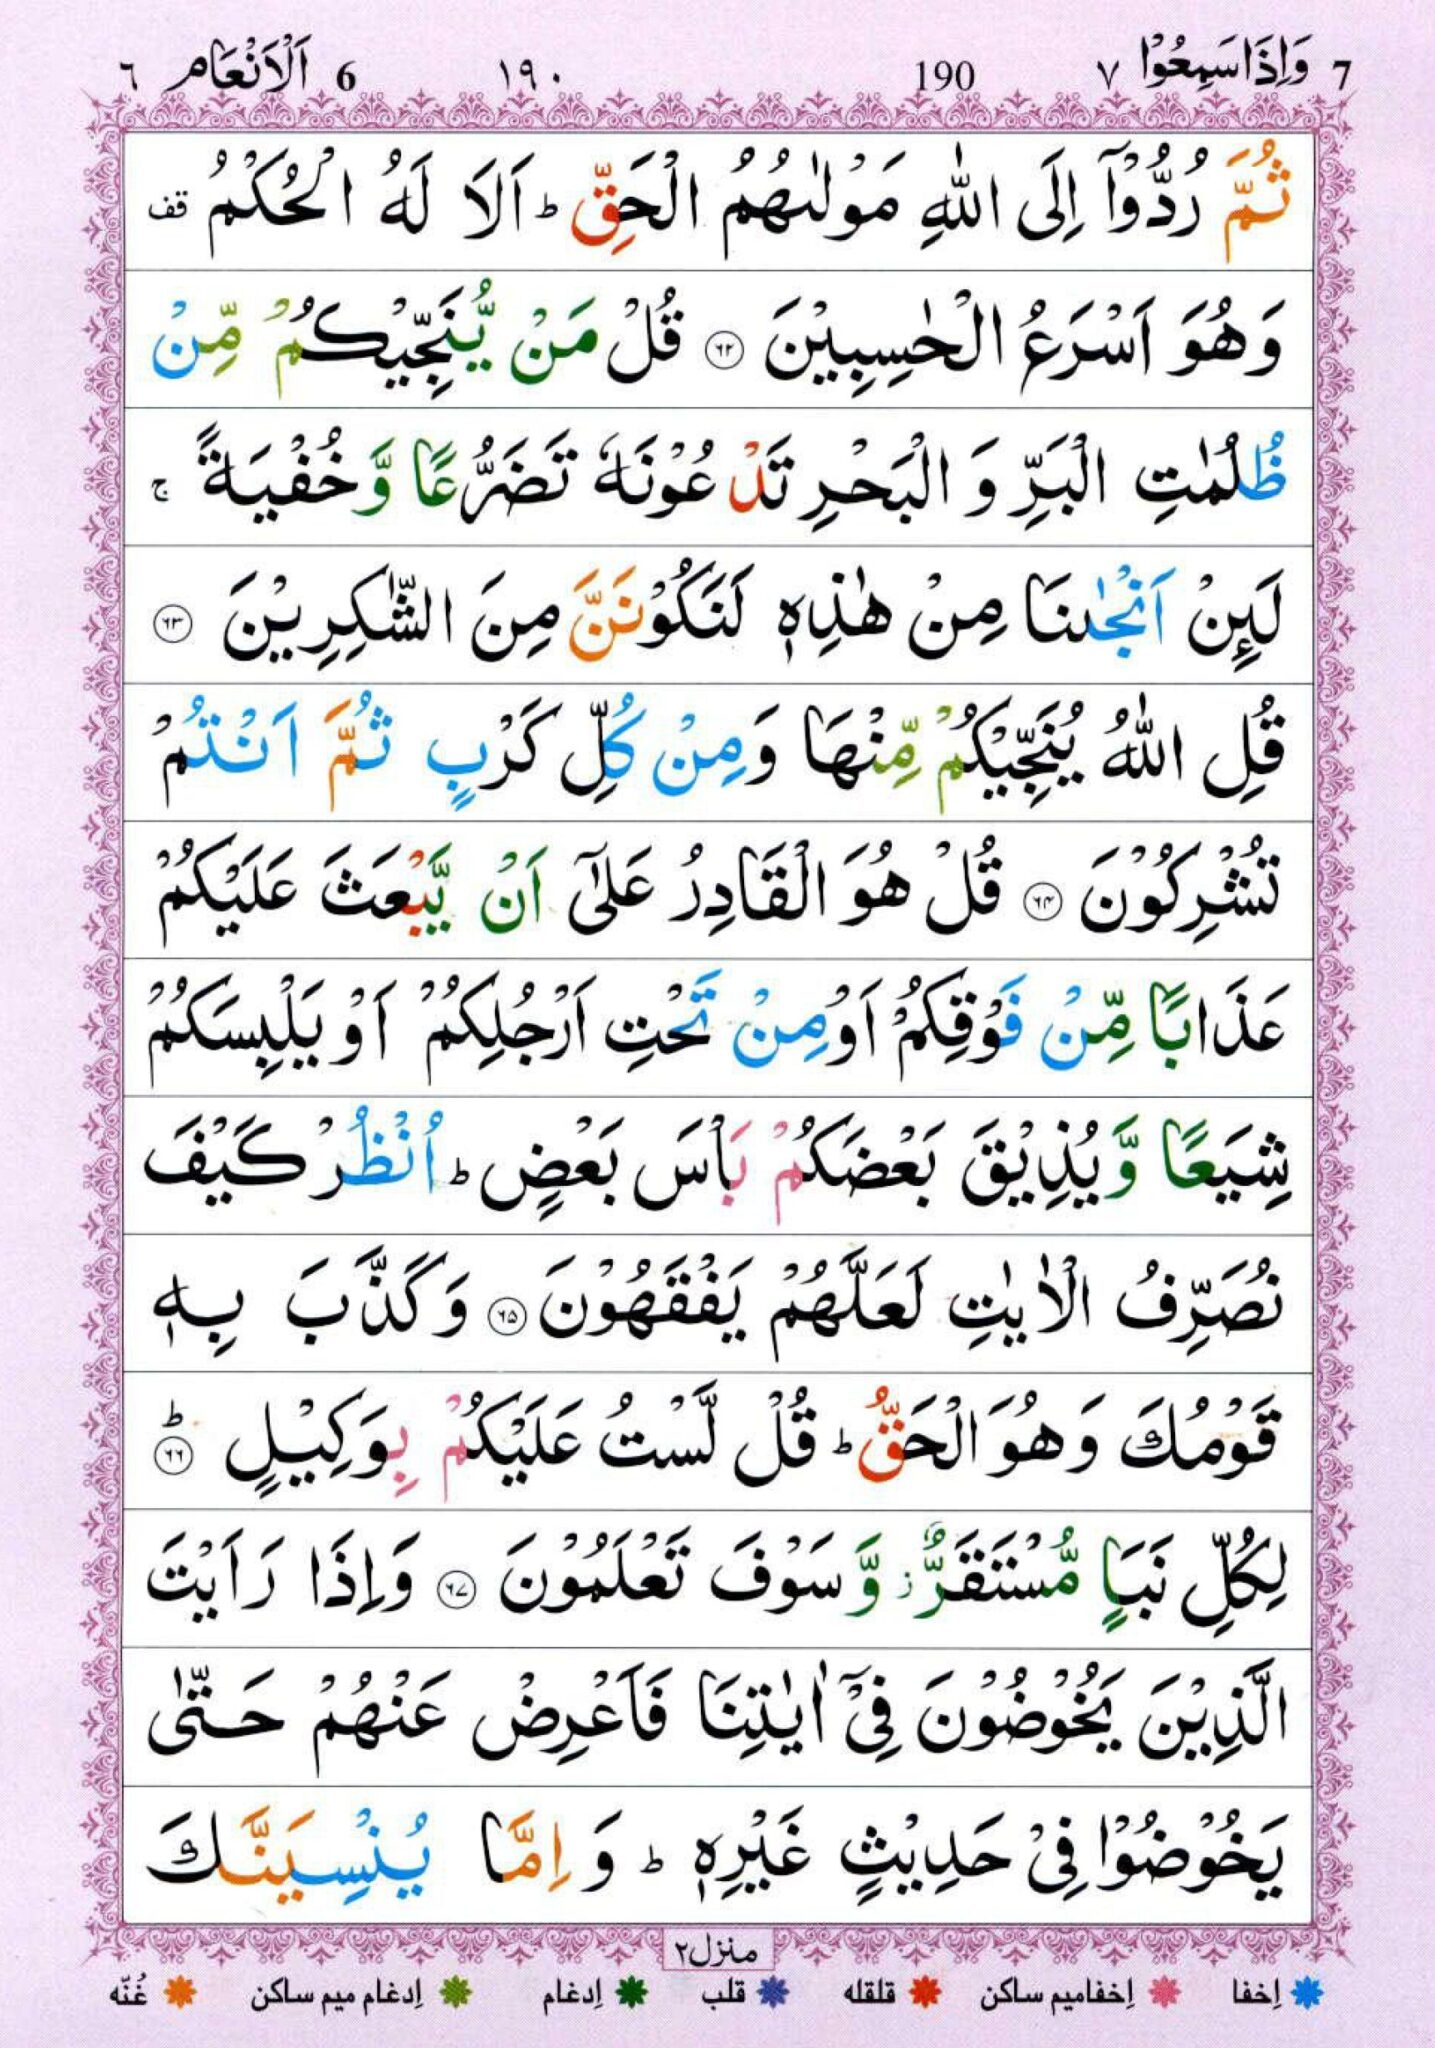 7 وَاِذَا سَمِعُوْا ٧ 190 ١٩٠ 6 اَلْاَنْعَام ٦
ثُمَّ رُدُّوْۤا اِلَى اللّٰهِ مَوْلٰىهُمُ الْحَقِّ ؕ اَلَا لَهُ الْحُكْمُ قف
وَهُوَ اَسْرَعُ الْحٰسِبِيْنَ ۝۶۲ قُلْ مَنْ يُّنَجِّيْكُمْ مِّنْ
ظُلُمٰتِ الْبَرِّ وَ الْبَحْرِ تَدْعُوْنَهٗ تَضَرُّعًا وَّخُفْيَةً ۚ
لَىِٕنْ اَنْجٰىنَا مِنْ هٰذِهٖ لَنَكُوْنَنَّ مِنَ الشّٰكِرِيْنَ ۝۶۳
قُلِ اللّٰهُ يُنَجِّيْكُمْ مِّنْهَا وَمِنْ كُلِّ كَرْبٍ ثُمَّ اَنْتُمْ
تُشْرِكُوْنَ ۝۶۴ قُلْ هُوَ الْقَادِرُ عَلٰۤى اَنْ يَّبْعَثَ عَلَيْكُمْ
عَذَابًا مِّنْ فَوْقِكُمْ اَوْ مِنْ تَحْتِ اَرْجُلِكُمْ اَوْ يَلْبِسَكُمْ
شِيَعًا وَّيُذِيْقَ بَعْضَكُمْ بَاْسَ بَعْضٍ ؕ اُنْظُرْ كَيْفَ
نُصَرِّفُ الْاٰيٰتِ لَعَلَّهُمْ يَفْقَهُوْنَ ۝۶۵ وَكَذَّبَ بِهٖ
قَوْمُكَ وَهُوَ الْحَقُّ ؕ قُلْ لَّسْتُ عَلَيْكُمْ بِوَكِيْلٍ ؕ۝۶۶
لِكُلِّ نَبَاٍ مُّسْتَقَرٌّ ؗ وَّسَوْفَ تَعْلَمُوْنَ ۝۶۷ وَاِذَا رَاَيْتَ
الَّذِيْنَ يَخُوْضُوْنَ فِىْۤ اٰيٰتِنَا فَاَعْرِضْ عَنْهُمْ حَتّٰى
يَخُوْضُوْا فِىْ حَدِيْثٍ غَيْرِهٖ ؕ وَ اِمَّا يُنْسِيَنَّكَ
منزل ۲
اِخفا اِخفامیم ساکن قلقله قلب اِدغام اِدغام میم ساکن غُنّه